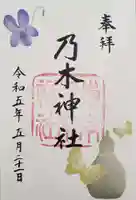 奉拝
乃木神社
令和五年五月二十一日